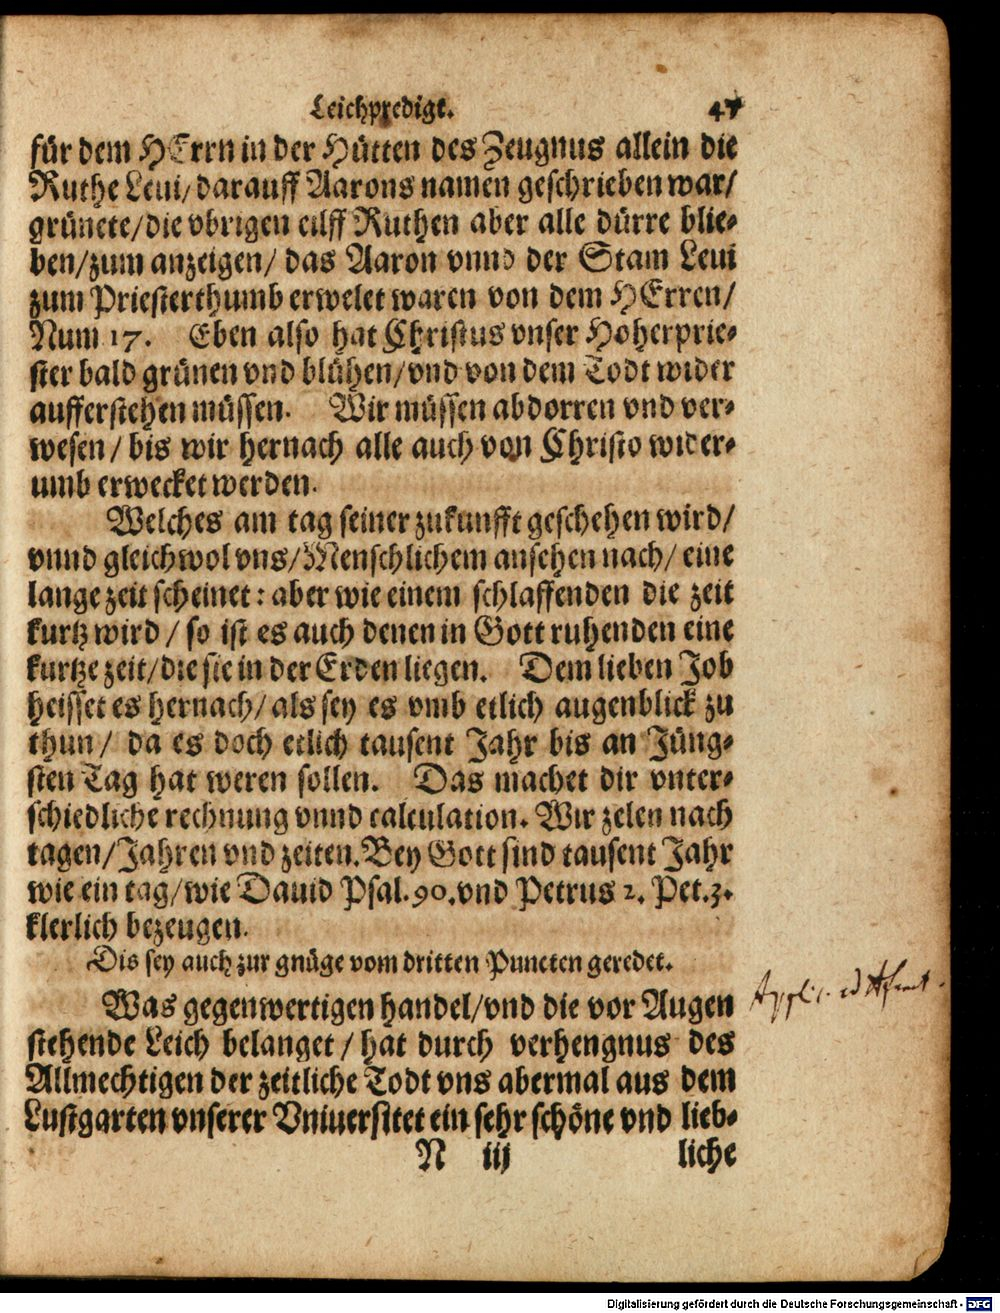 Leichpredigt. 47
für dem HErrn in der Hütten des Zeugnus allein die
Ruthe Leui/ darauff Aarons namen geschrieben war/
grünete/ die vbrigen eilff Ruthen aber alle dürre blie-
ben/ zum anzeigen/ das Aaron vnnd der Stam Leui
zum Priesterthumb erwelet waren von dem HErren/
Num 17. Eben also hat Christus vnser Hoherprie-
ster bald grünen vnd blühen/ vnd von dem Todt wider
aufferstehen müssen. Wir müssen abdorren vnd ver-
wesen/ bis wir hernach alle auch von Christo wider-
umb erwecket werden.
Welches am tag seiner zukunfft geschehen wird/
vnnd gleichwol vns/ Menschlichem ansehen nach/ eine
lange zeit scheinet: aber wie einem schlaffenden die zeit
kurtz wird/ so ist es auch denen in Gott ruhenden eine
kurtze zeit/ die sie in der Erden liegen. Dem lieben Job
heisset es hernach/ als sey es vmb etlich augenblick zu
thun/ da es doch etlich tausent Jahr bis an Jüng-
sten Tag hat weren sollen. Das machet dir vnter-
schiedliche rechnung vnnd calculation. Wir zelen nach
tagen/ Jahren vnd zeiten. Bey Gott sind tausent Jahr
wie ein tag/ wie Dauid Psal. 90. vnd Petrus 2. Pet. 3.
klerlich bezeugen.
Dis sey auch zur gnüge vom dritten Puncten geredet.
Was gegenwertigen handel/ vnd die vor Augen
stehende Leich belanget/ hat durch verhengnus des
Allmechtigen der zeitliche Todt vns abermal aus dem
Lustgarten vnserer Vniuersitet ein sehr schöne vnd lieb-
N iij liche
Digitalisierung gefördert durch die Deutsche Forschungsgemeinschaft - DFG